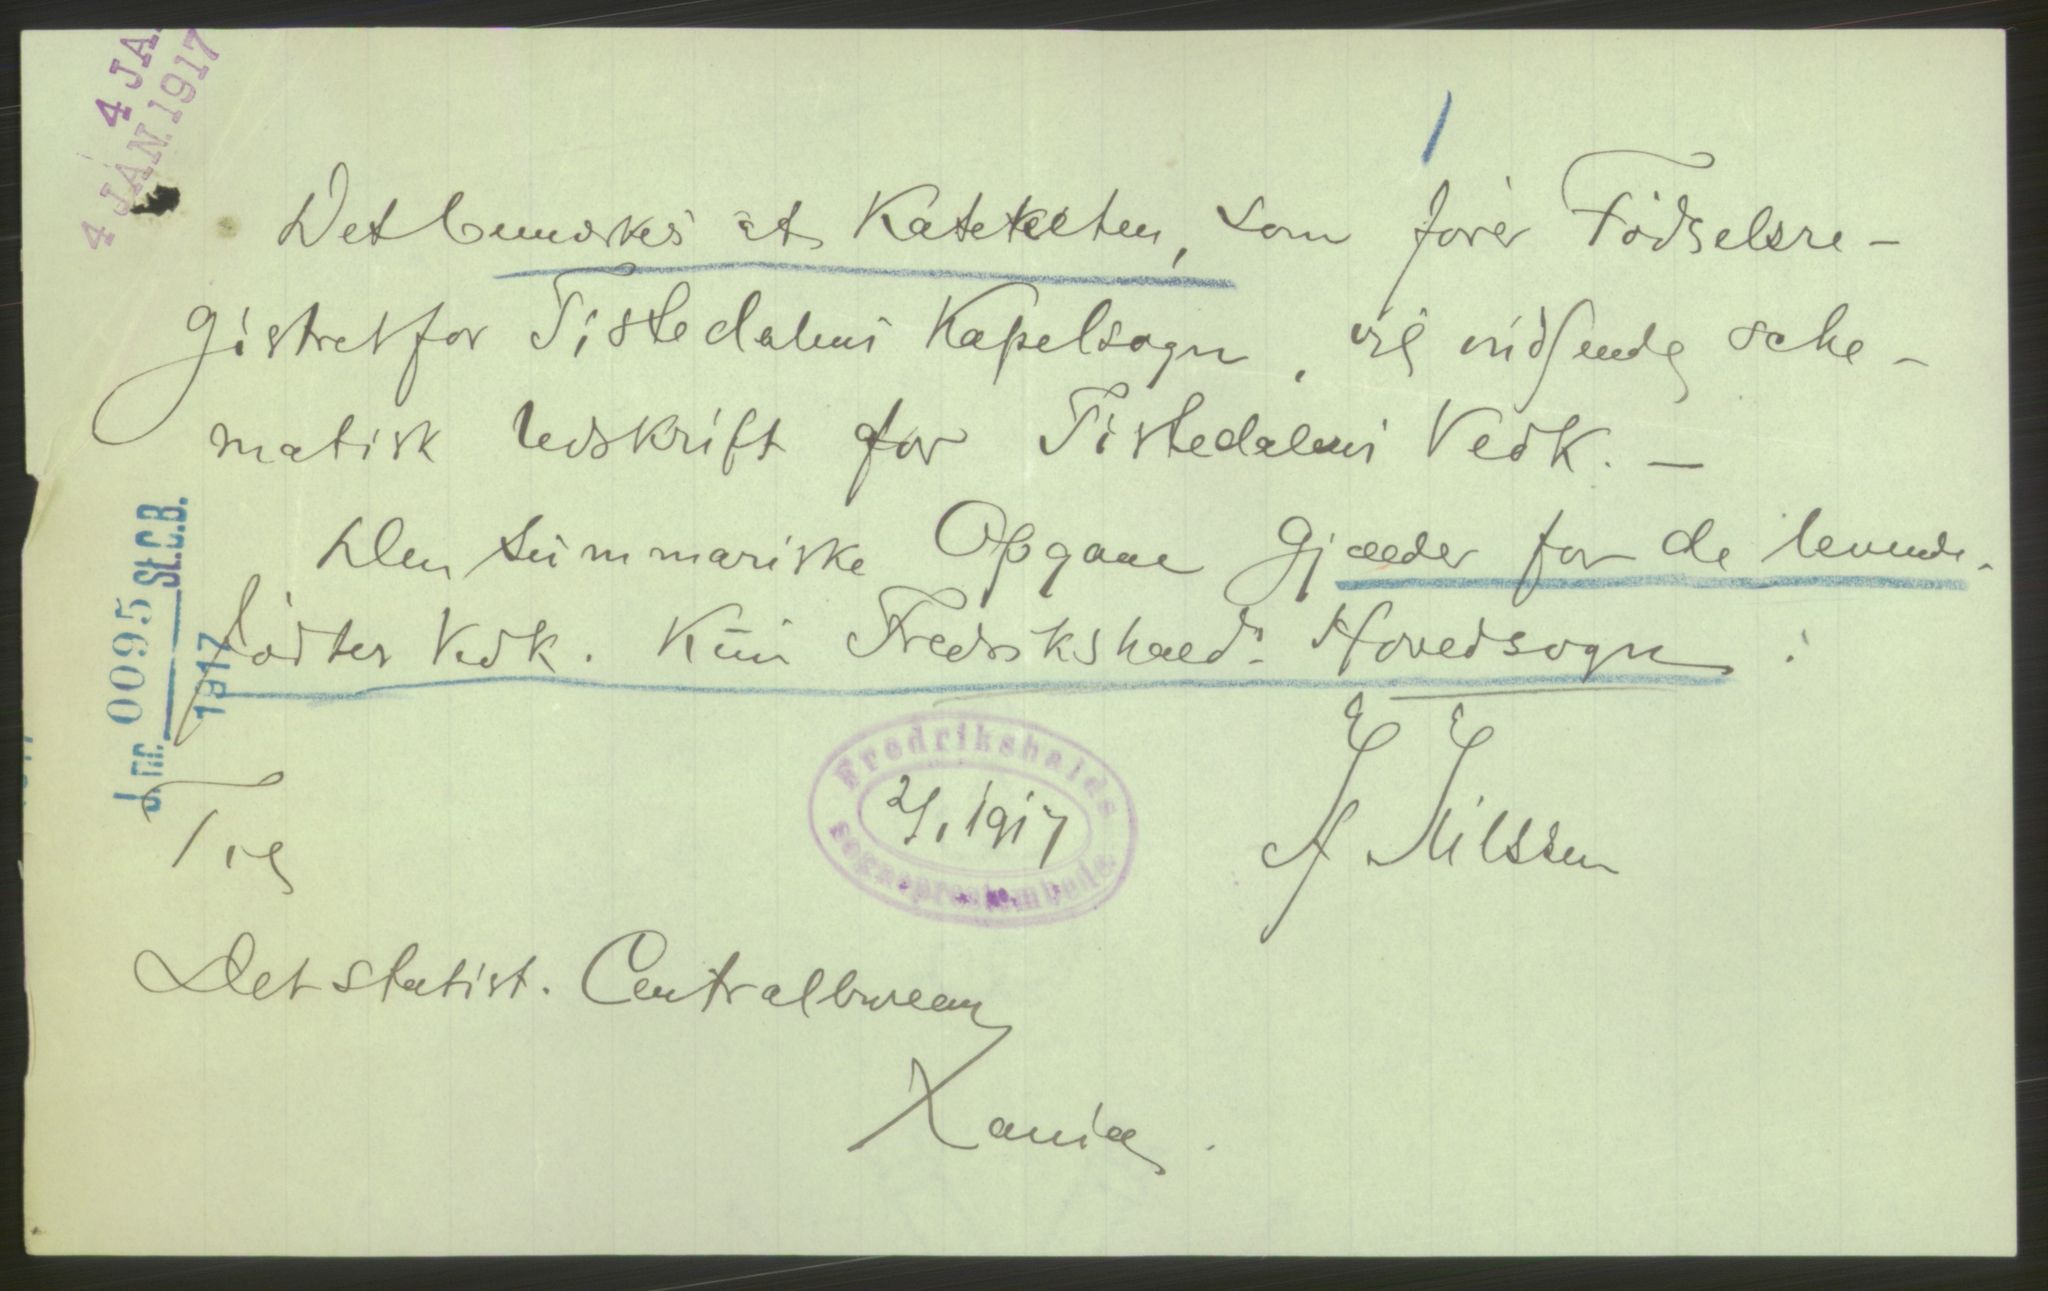 4 JA
4 JAN. 1917
Det bemærkes at Kateketen, som fører Fødselsre-
gistret for Tistedalens Kapelsogn, vil indsende sche-
matisk Udskrift for Tistedalens Vedk. —
Den summariske Opgave gjælder for de levende-
fødtes Vedk. kun Fredrikshalds Hovedsogn.
J. nr. 0095 St.C.B.
1917
Fredrikshalds
sogneprestembede.
2/1 1917
A Nilssen
Til
Det statist. Centralbureau
Xania.